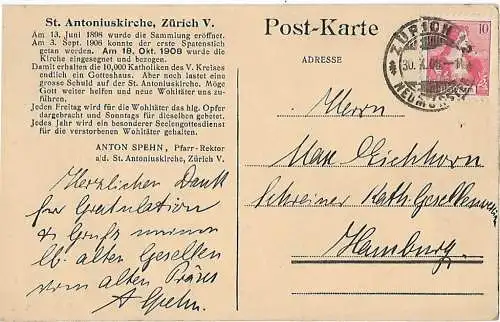 St. Antoniuskirche, Zürich V.
Am 13. Juni 1898 wurde die Sammlung eröffnet.
Am 3. Sept. 1906 konnte der erste Spatenstich
getan werden. Am 18. Okt. 1908 wurde die
Kirche eingesegnet und bezogen.
Damit erhalten die 10,000 Katholiken des V. Kreises
endlich ein Gotteshaus. Aber noch lastet eine
grosse Schuld auf der St. Antoniuskirche. Möge
Gott weiter helfen und neue Wohltäter uns
zuführen.
Jeden Freitag wird für die Wohltäter das hlg. Opfer
dargebracht und Sonntags für dieselben gebetet.
Jedes Jahr wird ein besonderer Seelengottesdienst
für die verstorbenen Wohltäter gehalten.
ANTON SPEHN, Pfarr-Rektor
a/d. St. Antoniuskirche, Zürich V.
Herzlichen Dank
für Gratulation
& Gruß meinem
lb. alten Gesellen
vom alten Präses
A Spehn.
Post-Karte
ADRESSE
ZÜRICH
30. X.
NEUMÜNST
10
Herrn
Max Eichhorn
Schreiner Kath. Gesellenverein
Hamburg.